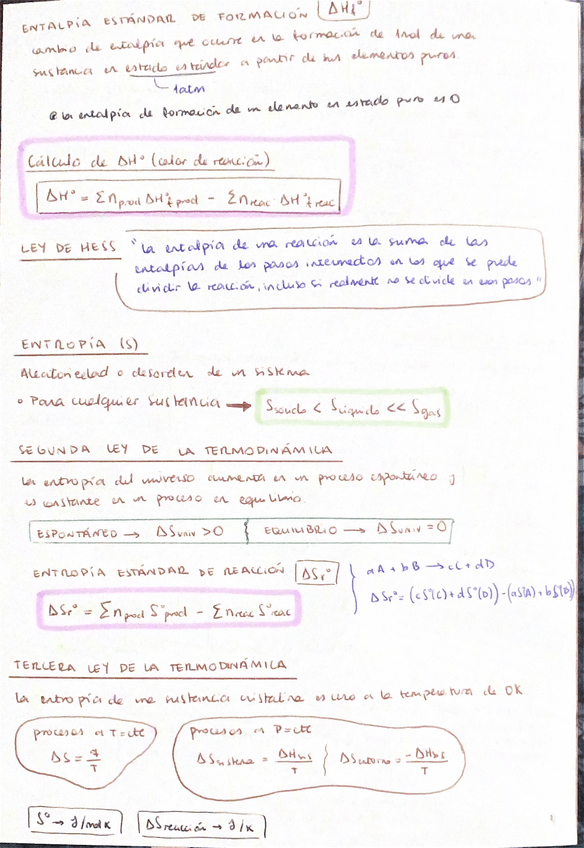 ENTALPÍA ESTÁNDAR DE FORMACIÓN ΔHf°
cambio de entalpía que ocurre en la formación de 1mol de una
sustancia en estado estándar a partir de sus elementos puros.
1atm
la entalpía de formación de un elemento en estado puro es 0
Cálculo de ΔH° (calor de reacción)
ΔH° = Σnprod ΔH°f prod - Σnreac · ΔH°f reac
LEY DE HESS "la entalpía de una reacción es la suma de las
entalpías de los pasos intermedios en los que se puede
dividir la reacción, incluso si realmente no se divide en esos pasos"
ENTROPÍA (S)
Aleatoriedad o desorden de un sistema
• Para cualquier sustancia → Ssólido < Slíquido << Sgas
SEGUNDA LEY DE LA TERMODINÁMICA
la entropía del universo aumenta en un proceso espontáneo y
es constante en un proceso en equilibrio.
ESPONTÁNEO → ΔSuniv >0 { EQUILIBRIO → ΔSuniv = 0
ENTROPÍA ESTÁNDAR DE REACCIÓN ΔSr°
aA + bB → cC + dD
ΔSr° = Σnprod S°prod - Σnreac S°reac
ΔSr° = (cS°(C) + dS°(D)) - (aS°(A) + bS°(B))
TERCERA LEY DE LA TERMODINÁMICA
la entropía de una sustancia cristalina es cero a la temperatura de 0K
procesos a T=cte
ΔS = q/T
procesos a P=cte
ΔSsistema = ΔHsis/T { ΔSentorno = -ΔHsis/T
S° → J/molK
ΔSreacción → J/K